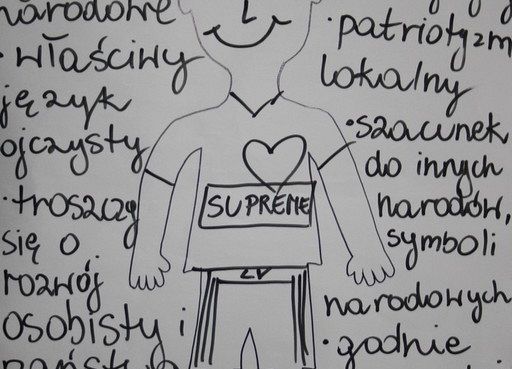 narodowe
• właściwy
język
ojczysty
• troszczy
się o
rozwój
osobisty i
SUPREME
LV
• patriotyzm
lokalny
• szacunek
do innych
narodów,
symboli
narodowych
• godnie